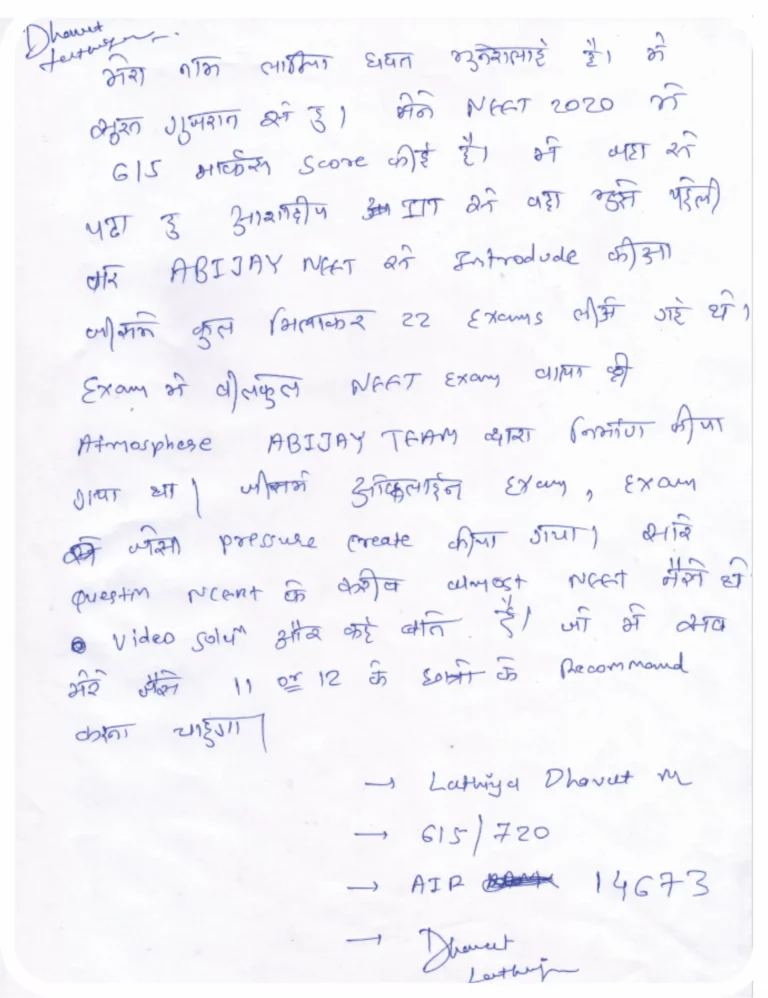 Dhavat
Lathiya
मेरा नाम लाठिया धवत मुकेशभाई है। मे
सुरत गुजरात से हु। मेने NEET 2020 मे
615 मार्कस Score कीई है। मे वहा से
पढा हु आशादीप IIT से वहा मुझे पहेली
बार ABIJAY NEET से Introdude कीआ
जीसमे कुल मिलाकर 22 Exams लीए गई थे।
Exam मे बीलकुल NEET Exam वाला ही
Atmosphere ABIJAY TEAM द्वारा निर्माण कीया
गया था। जीसमे ओफलाईन Exam, Exam
जेसा pressure create कीया गया। सारे
Questin NCERT के करीब almost NEET जैसे थे
Video solun और कई बाते है। जो मे सब
मेरे जैसे 11 or 12 के छात्रो के Recommand
करना चाहुगा।
→ Lathiya Dhavat M
→ 615/720
→ AIR 14673
→ Dhavat
Lathiya